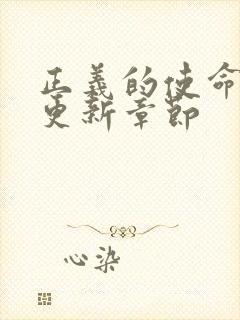 正義的使命
更新章節
心染